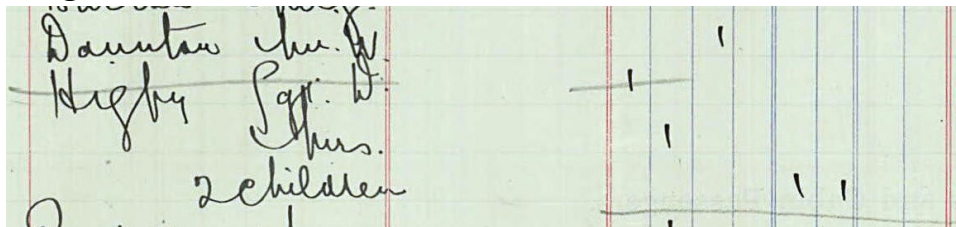 Daunton Chr. W.
Higby Sgt. W.
Mrs.
2 children